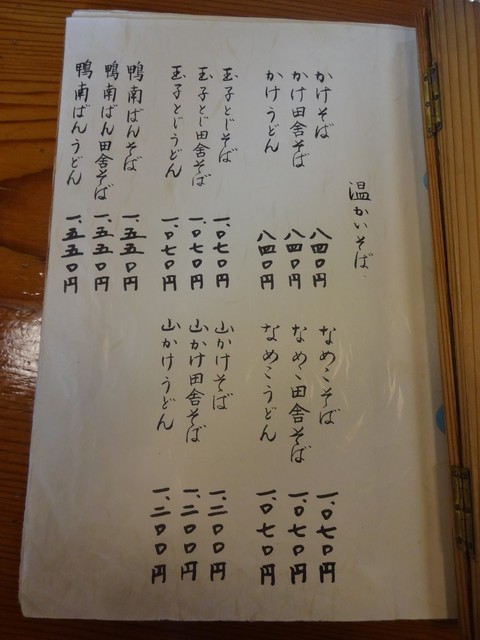 温かいそば
かけそば 八四〇円
かけ田舎そば 八四〇円
かけうどん 八四〇円
玉子とじそば 一、〇七〇円
玉子とじ田舎そば 一、〇七〇円
玉子とじうどん 一、〇七〇円
鴨南ばんそば 一、五五〇円
鴨南ばん田舎そば 一、五五〇円
鴨南ばんうどん 一、五五〇円
なめこそば 一、〇七〇円
なめこ田舎そば 一、〇七〇円
なめこうどん 一、〇七〇円
山かけそば 一、二〇〇円
山かけ田舎そば 一、二〇〇円
山かけうどん 一、二〇〇円